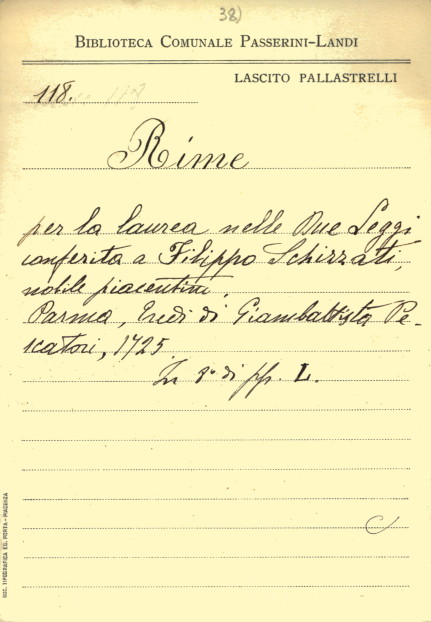 38)
BIBLIOTECA COMUNALE PASSERINI-LANDI
LASCITO PALLASTRELLI
118.
Rime
per la laurea nelle Due Leggi
conferita a Filippo Schizzati,
nobile piacentino.
Parma, Eredi di Giambattista Pe-
scatori, 1725
In 8° di pp. L.
SOC. TIPOGRAFICA ED. PORTA - PIACENZA